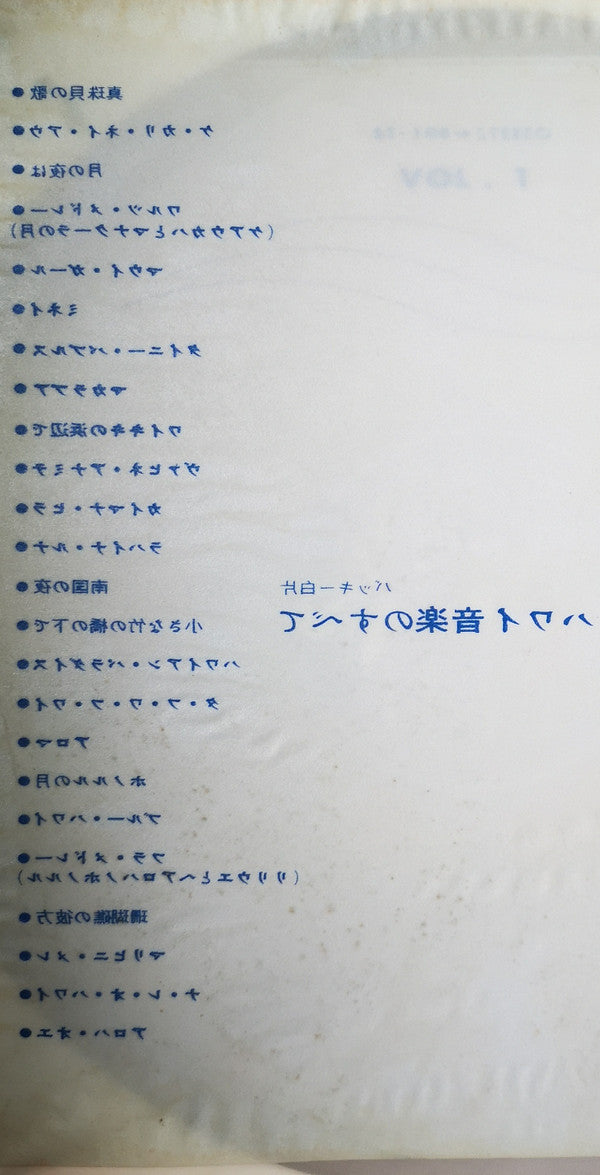 真珠貝の歌●
ケ・カリ・ネイ・アウ●
月の夜は●
ワルツ・メドレー●
(ケアウカハとマナクーラの月)
マウイ・ガール●
ミネイ●
タイニー・バブルス●
マカラプア●
ワイキキの浜辺で●
ヴァヒネ・アナミテ●
カイマナ・ヒラ●
ラハイナ・ルナ●
南国の夜●
小さな竹の橋の下で●
ハワイアン・パラダイス●
タ・フ・ワ・フ・ワイ●
アロマ●
ホノルルの月●
ブルー・ハワイ●
フラ・メドレー●
(リリウエとヘアロハノホノルル)
珊瑚礁の彼方●
マリヒニ・メレ●
ナ・レ・オ・ハワイ●
アロハ・オエ●
バッキー白片
ハワイ音楽のすべて